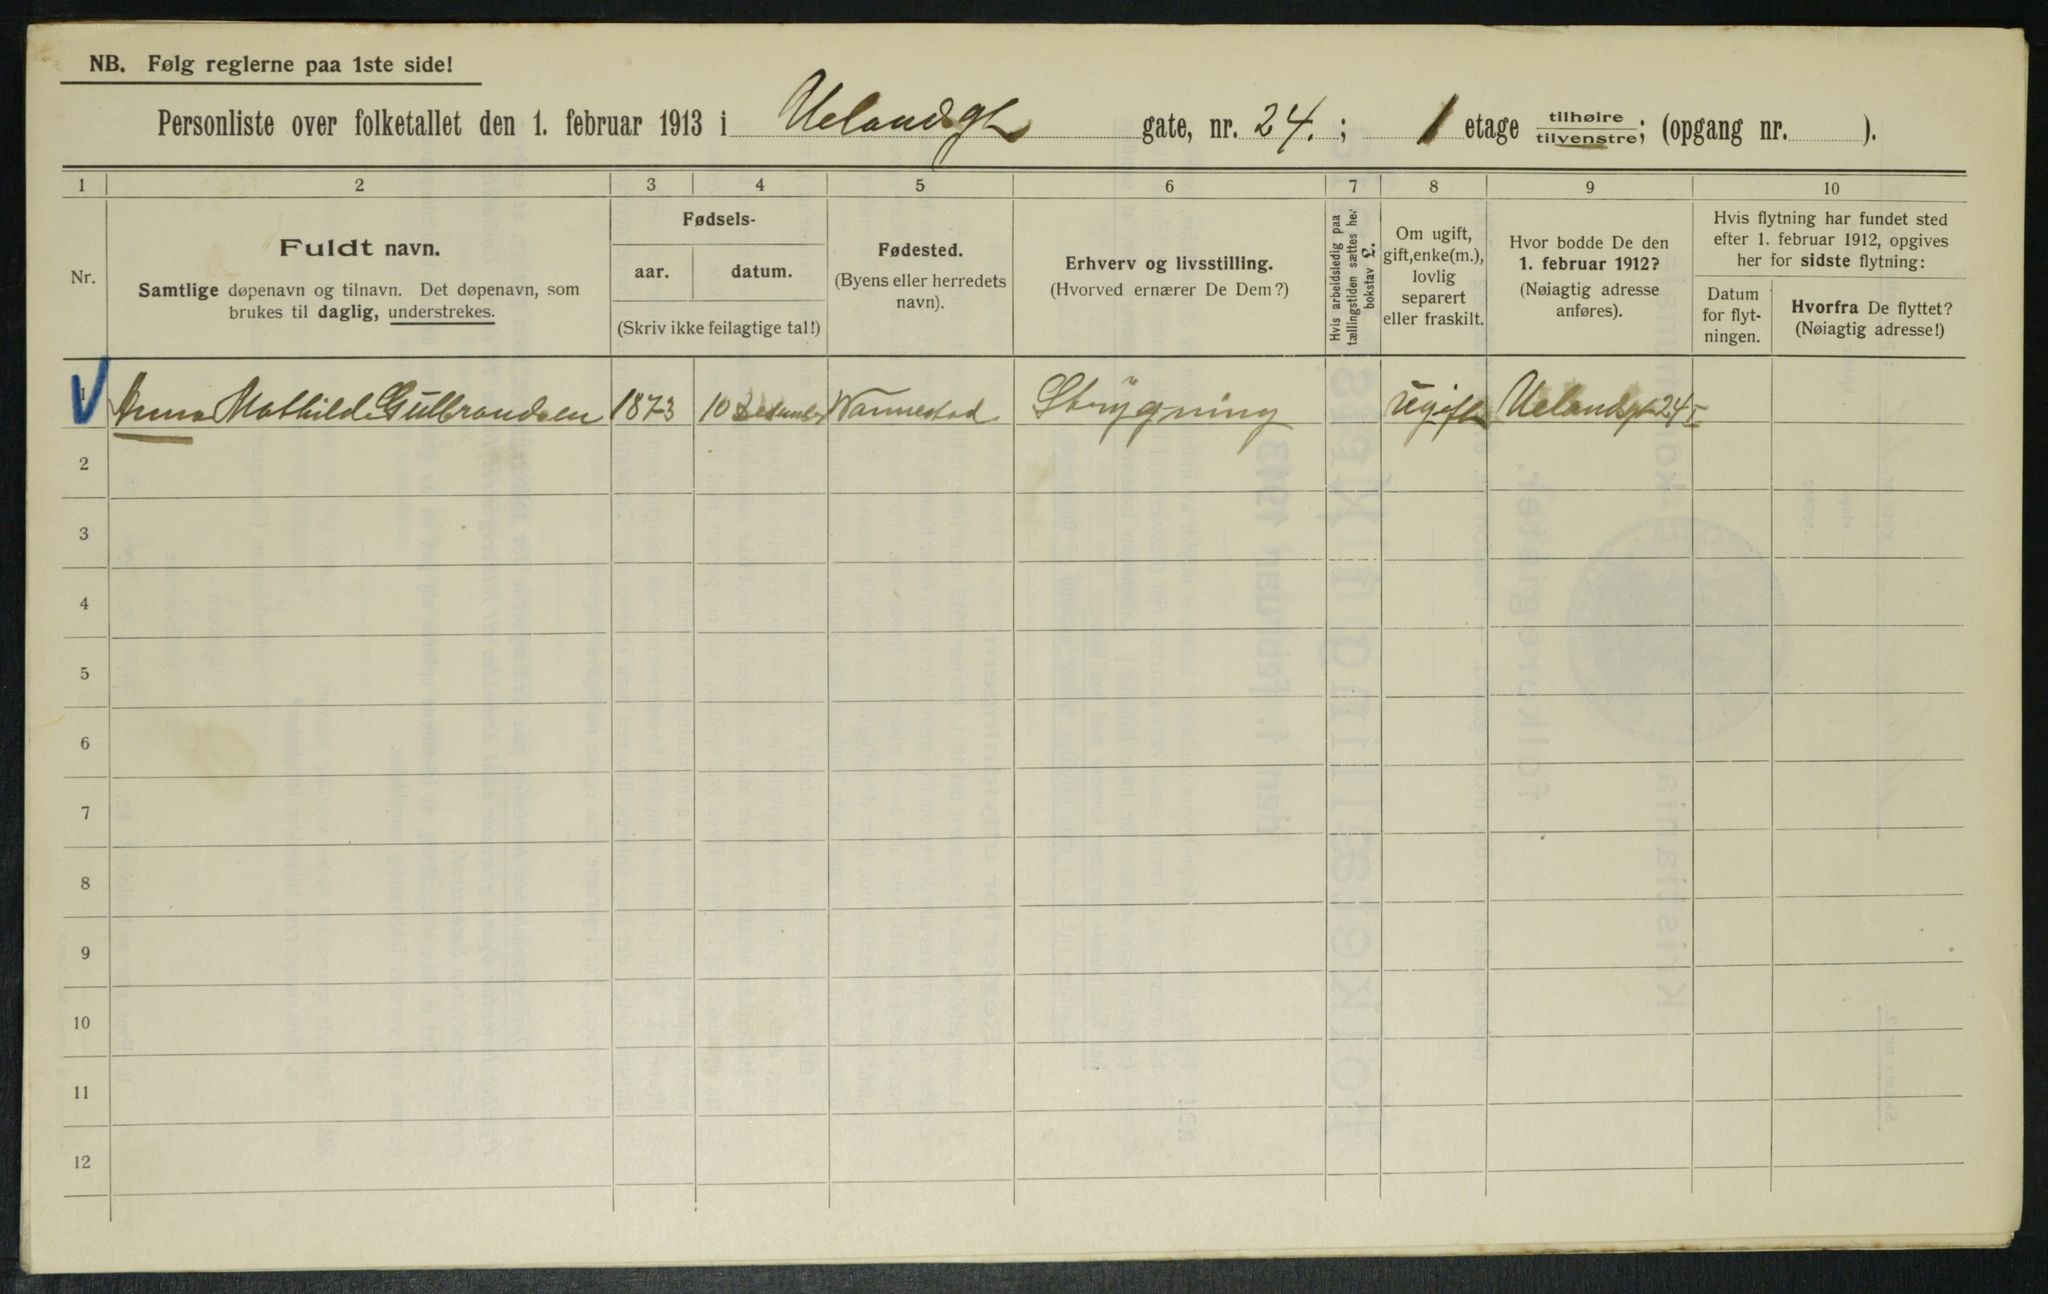 NB. Følg reglerne paa 1ste side!
Personliste over folketallet den 1. februar 1913 i Uelandsgt gate, nr. 24. ; 1 etage tilhøire tilvenstre; (opgang nr. ).
1 2 3 4 5 6 7 8 9 10
Nr.
Fuldt navn.
Samtlige døpenavn og tilnavn. Det døpenavn, som
brukes til daglig, understrekes.
Fødsels-
aar. datum.
(Skriv ikke feilagtige tal!)
Fødested.
(Byens eller herredets
navn).
Erhverv og livsstilling.
(Hvorved ernærer De Dem?)
Hvis arbeidsledig paa
tællingstiden sættes her
bokstav L.
Om ugift,
gift, enke(m.),
lovlig
separert
eller fraskilt.
Hvor bodde De den
1. februar 1912?
(Nøiagtig adresse
anføres).
Hvis flytning har fundet sted
efter 1. februar 1912, opgives
her for sidste flytning:
Datum
for flyt-
ningen.
Hvorfra De flyttet?
(Nøiagtig adresse!)
1 Anna Mathilde Gulbrandsen 1873 10 Desember Vannestad Strygning Ugift Uelandsgt 24 I
2
3
4
5
6
7
8
9
10
11
12